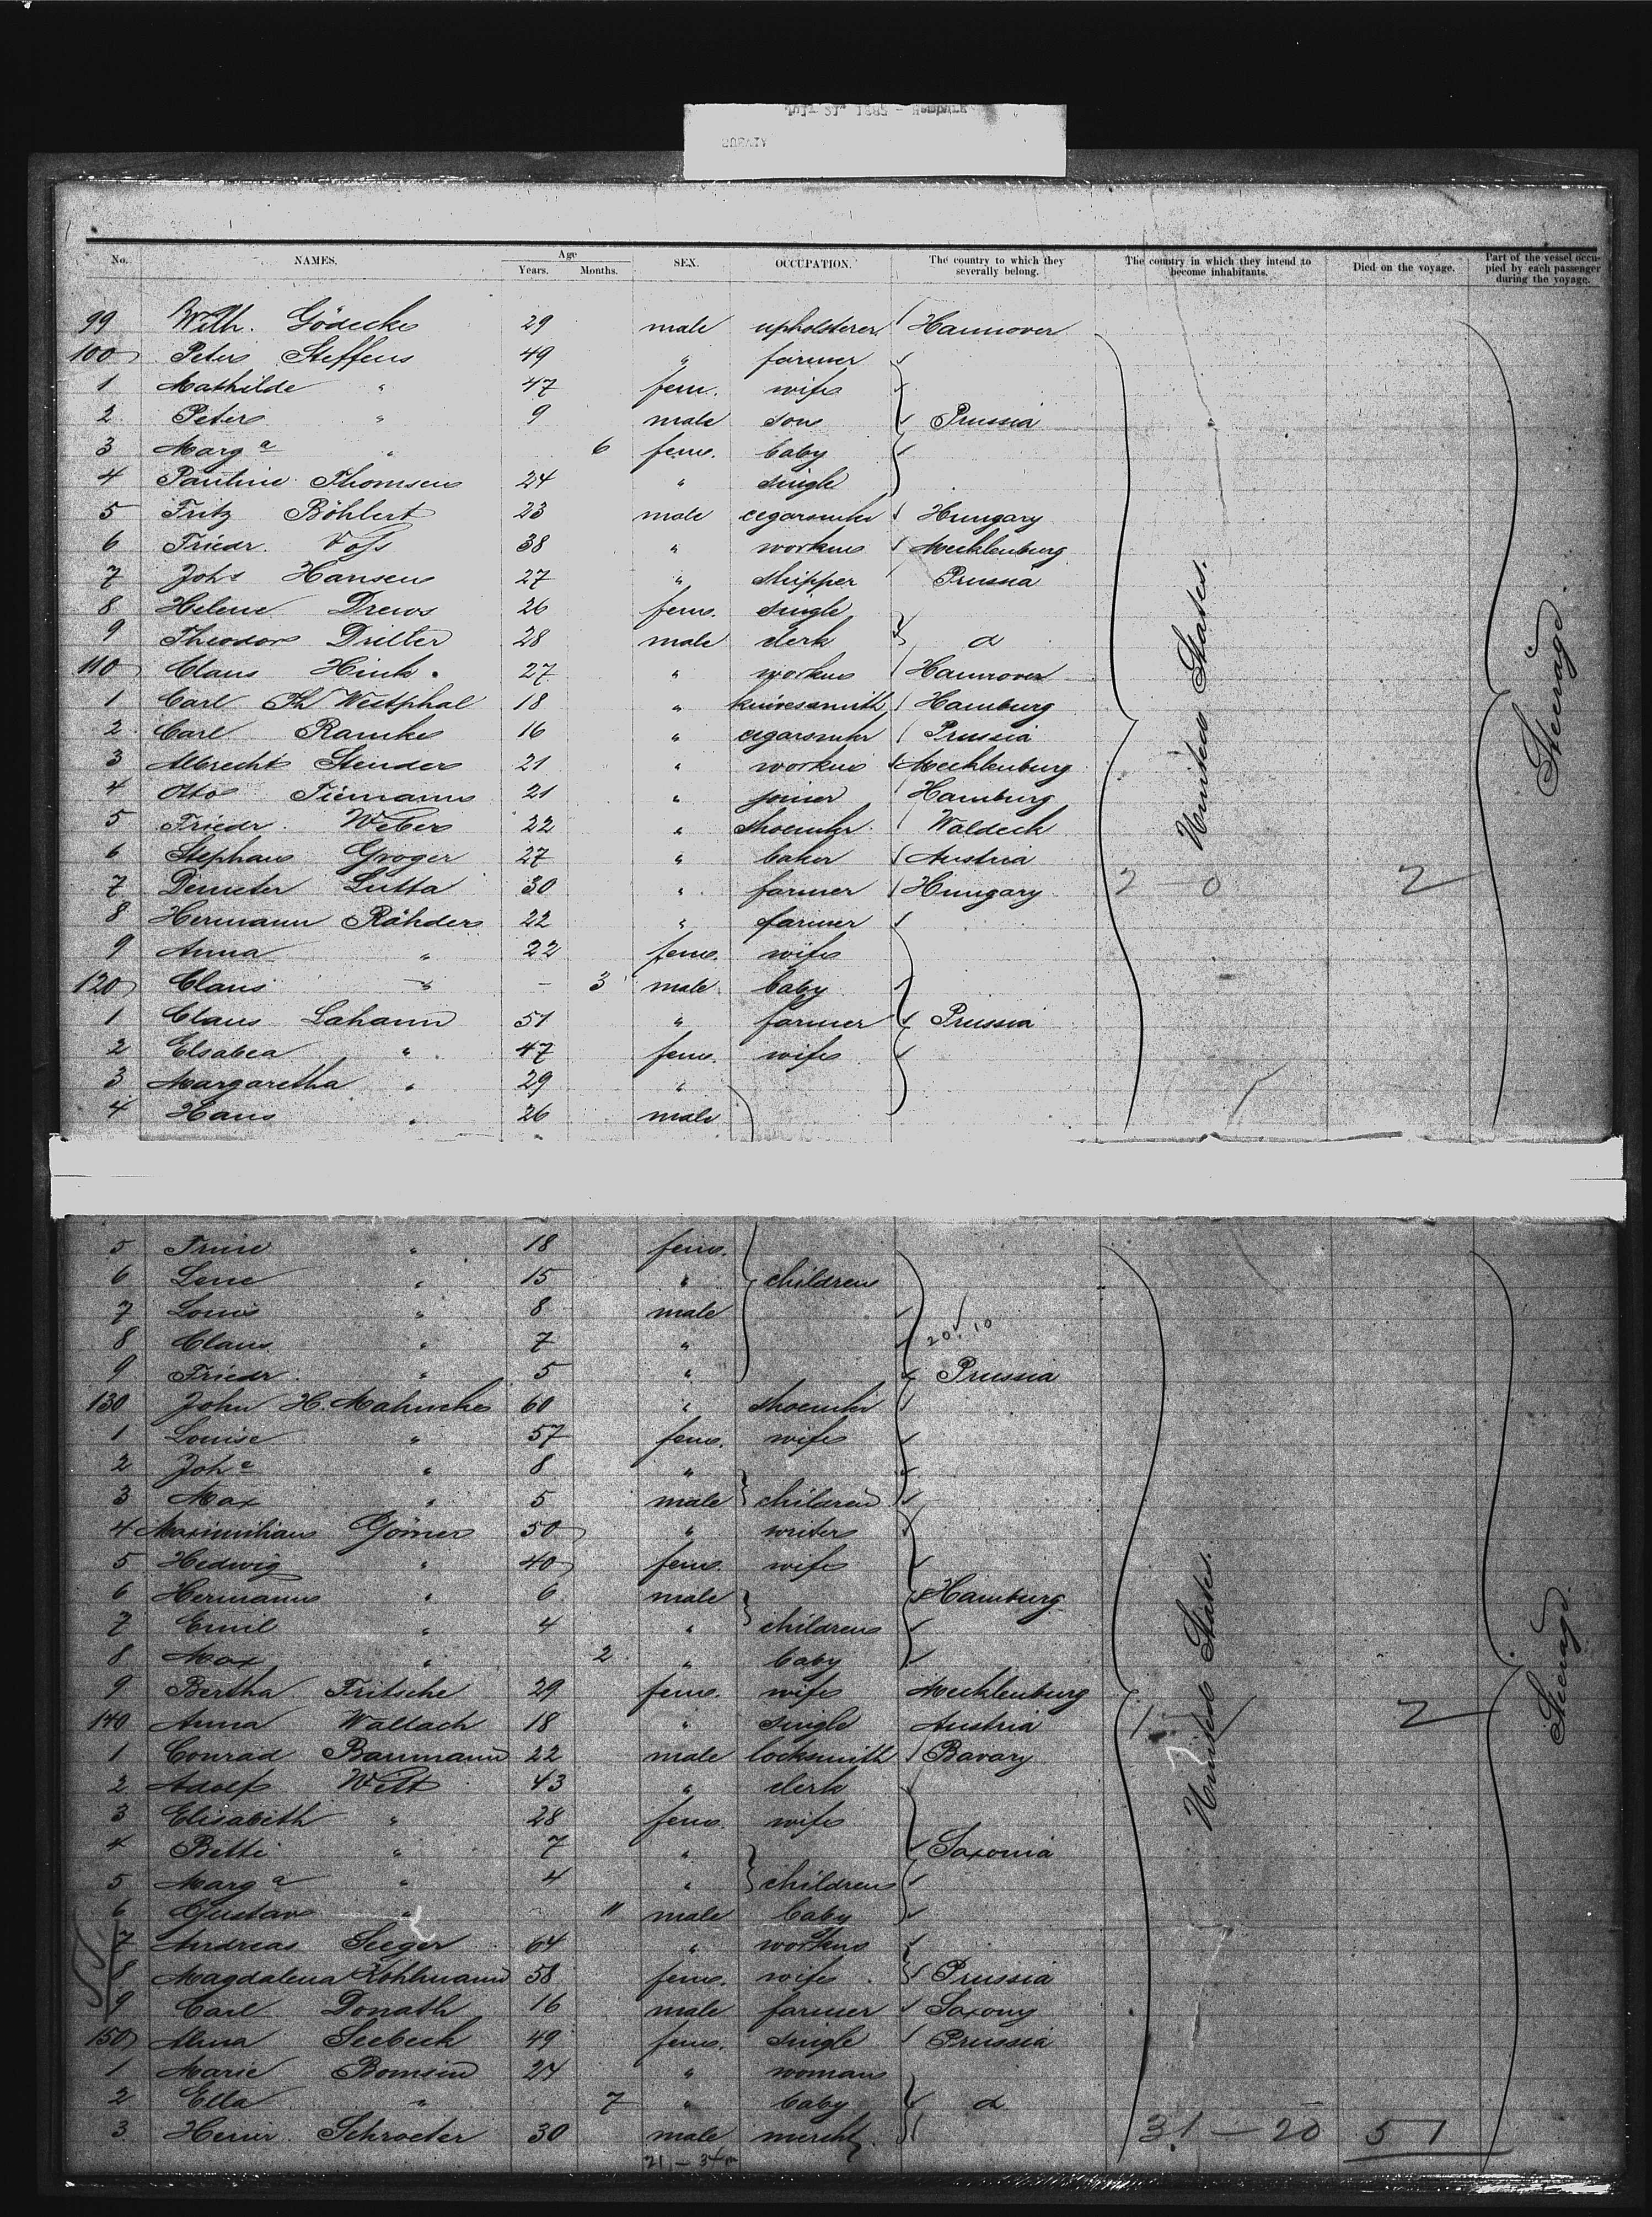 No. NAMES. Age Years. Months. SEX. OCCUPATION. The country to which they severally belong. The country in which they intend to become inhabitants. Died on the voyage. Part of the vessel occupied by each passenger during the voyage.
99 Wilh. Gödecke 29 male upholsterer Hannover
100 Peter Steffens 49 " farmer
1 Mathilde " 47 fem. wife
2 Peter " 9 male son Prussia
3 Marga " 6 fem. baby
4 Pauline Thomsen 24 " single
5 Fritz Böhlert 23 male cigarsmkr Hungary
6 Friedr. Voss 38 " workm Mecklenburg
7 Johs Hansen 27 " skipper Prussia
8 Helene Drews 26 fem. single
9 Theodor Driller 28 male clerk d
110 Claus Hink 27 " workm Hannover
1 Carl Th Westphal 18 " knivessmith Hamburg
2 Carl Ramke 16 " cigarsmkr Prussia
3 Albrecht Stender 21 " workm Mecklenburg
4 Otto Tiemann 21 " joiner Hamburg
5 Friedr. Weber 22 " shoemkr. Waldeck
6 Stephan Groger 27 " baker Austria
7 Demeter Lutta 30 " farmer Hungary 2 - 0 2
8 Hermann Röhders 22 " farmer
9 Anna " 22 fem. wife
120 Claus " - 3 male baby
1 Claus Lahann 51 " farmer Prussia
2 Elsabea " 47 fem. wife
3 Margaretha " 29 "
4 Hans " 26 male
United States.
Steerage
5 Trine " 18 fem.
6 Lene " 15 " children
7 Louis " 8 male
8 Claus " 7 "
9 Friedr. " 5 " Prussia
130 John H. Mahncke 60 " shoemkr
1 Louise " 57 fem. wife
2 Johe " 8 "
3 Max " 5 male children
4 Maximilian Görner 50 " writer
5 Hedwig " 40 fem. wife
6 Hermann " 6 male Hamburg
7 Emil " 4 " children
8 Max " 2 " baby
9 Bertha Fritsche 29 fem. wife Mecklenburg
140 Anna Wallach 18 " single Austria 2
1 Conrad Baumann 22 male locksmith Bavary
2 Adolf Witt 43 " clerk
3 Elisabeth " 28 fem. wife
4 Betti " 7 " Saxonia
5 Marga " 4 " children
6 Gustav " 11 male baby
7 Andreas Seeger 64 " workm
8 Magdalena Kohlmann 58 fem. wife Prussia
9 Carl Donath 16 male farmer Saxony
150 Alma Seebeck 49 fem. single Prussia
1 Marie Bomsin 24 " woman
2 Ella " 7 " baby d
3 Henr. Schroeter 30 male mercht. 31 - 20 51
21 - 34
United States.
Steerage